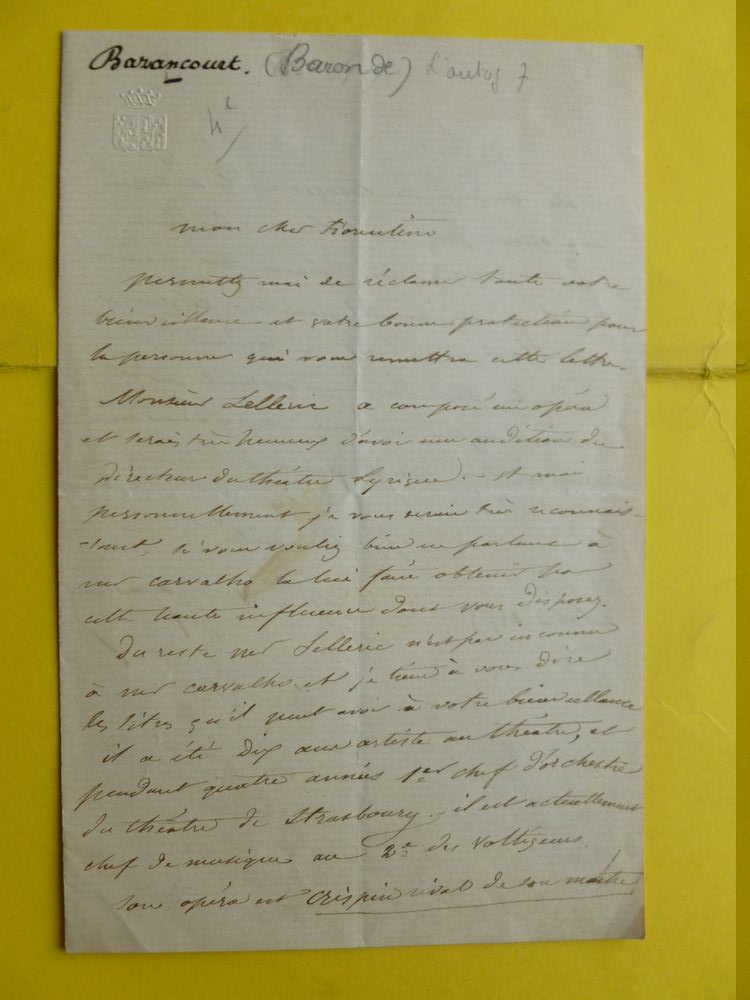 Bazancourt. (Baron de) L'autog 7
4
mon cher Fiorentino
permettez moi de réclamer toute votre
bienveillance et votre bonne protection pour
la personne qui vous remettra cette lettre.
Monsieur Sellenic a composé un opéra
et serais très heureux d'avoir une audition du
directeur du théâtre lyrique. - et moi
personnellement je vous serais très reconnais-
-sant, si vous vouliez bien en parlant à
mr carvalho la lui faire obtenir par
cette haute influence dont vous disposez.
Du reste mr Sellenic n'est pas inconnu
à mr carvalho. et je tiens à vous dire
les titres qu'il peut avoir à votre bienveillance
il a été dix ans artiste au théâtre, et
pendant quatre années 1er chef d'orchestre
du théâtre de Strasbourg. - il est actuellement
chef de musique au 2e des voltigeurs.
son opéra est crispin rival de son maître